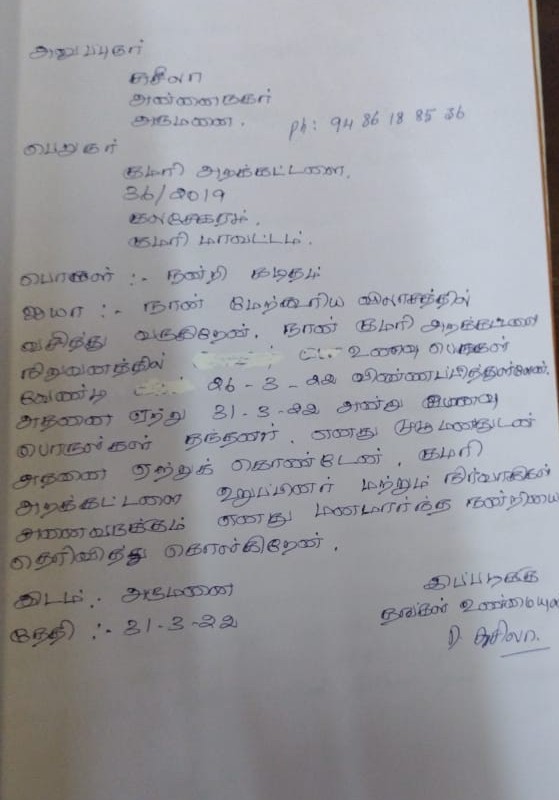 அனுப்புநர்
சுசீலா
அன்னைநகர்
அருமனை.
ph: 94 86 18 85 36
பெறுநர்
குமரி அறக்கட்டளை.
36/2019
குலசேகரம்.
குமரி மாவட்டம்.
பொருள் :- நன்றி கடிதம்
ஐயா :- நான் மேற்கூறிய விலாசத்தில்
வசித்து வருகிறேன். நான் குமரி அறக்கட்டளை
நிறுவனத்தில் உணவு பொருள்
வேண்டி 26-3-22 விண்ணப்பித்துள்ளேன்.
அதனை ஏற்று 31-3-22 அன்று உணவு
பொருள்கள் தந்தனர். எனது முழு மனதுடன்
அதனை ஏற்றுக் கொண்டேன். குமரி
அறக்கட்டளை உறுப்பினர் மற்றும் நிர்வாகிகள்
அனைவருக்கும் எனது மனமார்ந்த நன்றியை
தெரிவித்து கொள்கிறேன்.
இடம் :- அருமனை
தேதி :- 31-3-22
இப்படிக்கு
தங்கள் உண்மையுள
சுசிலா.